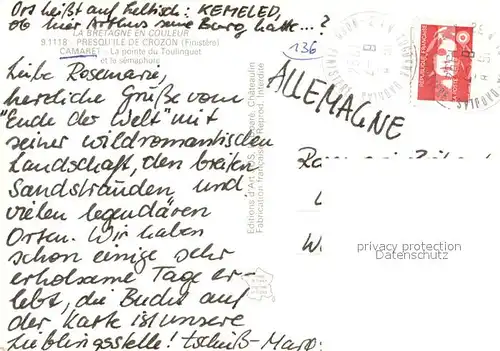 Ort heißt auf Keltisch: KEMELED,
ob hier Arthus seine Burg hatte...?
LA BRETAGNE EN COULEUR
9.1118 - PRESQU'ILE DE CROZON (Finistère)
CAMARET - La pointe du Toulinguet
et le sémaphore
136
Liebe Rosemarie,
herzliche Grüße vom
"Ende der Welt" mit
seiner wildromantischen
Landschaft, den breiten
Sandstränden und
vielen legendären
Orten. Wir haben
schon einige sehr
erholsame Tage er-
lebt, die Bucht auf
der Karte ist unsere
Lieblingsstelle! Tschüß - Marg
Editions d'Art JOS Châteaulin
Fabrication française - Reprod. interdite
ALLEMAGNE
RÉPUBLIQUE FRANÇAISE
W
picture postcards
CARAVIN